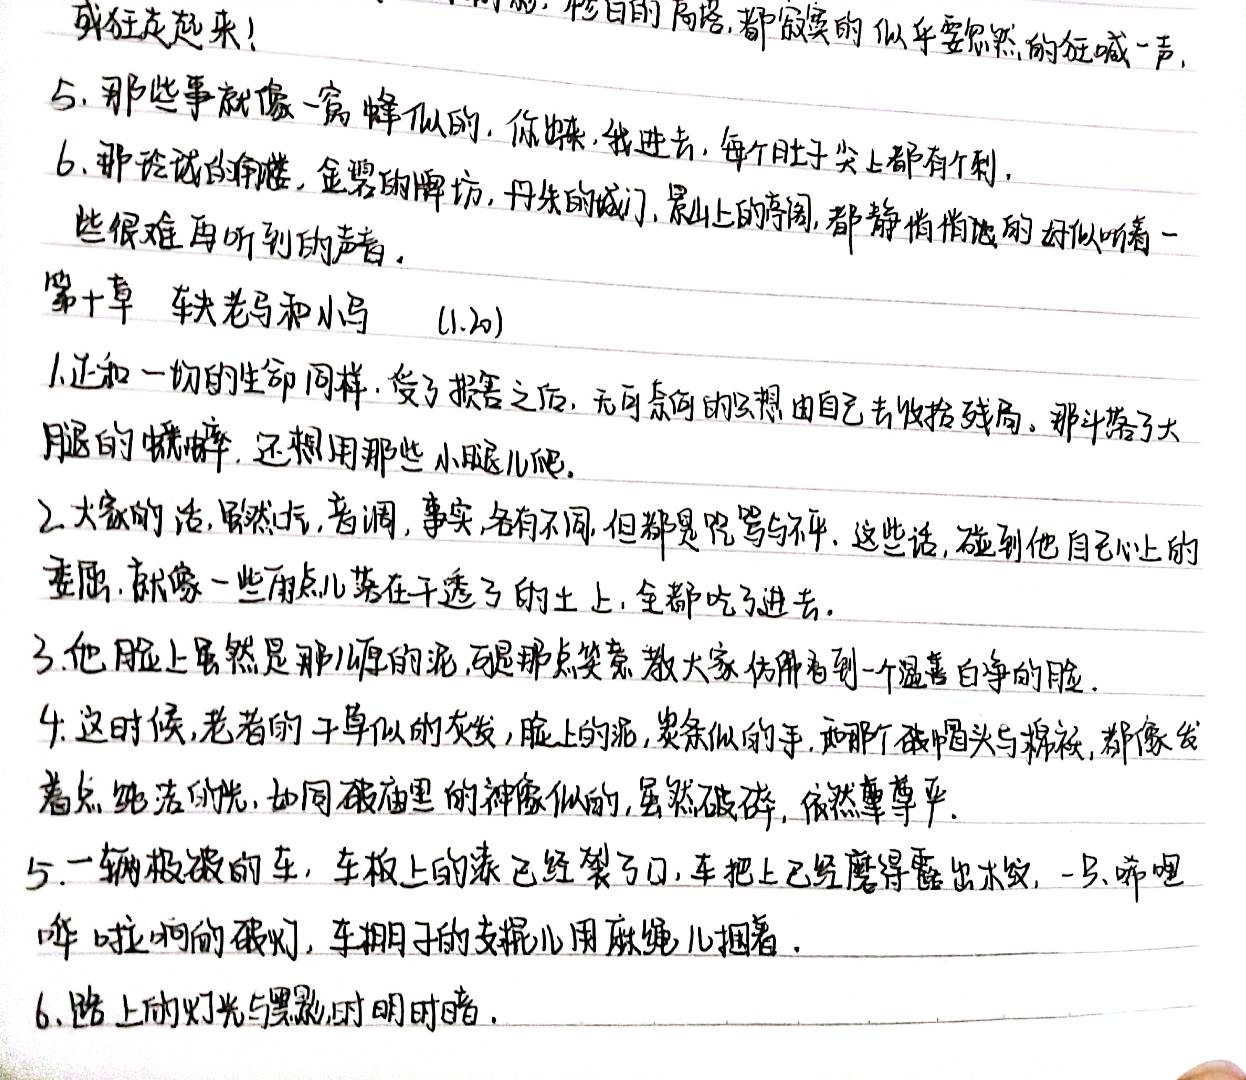 惨白的高塔,都寂寞的似乎要忽然的狂喊一声,
或狂走起来!
5、那些事就像一窝蜂似的,你出来,我进去,每个肚子尖上都有个刺。
6、那玲珑的角楼,金碧的牌坊,丹朱的城门,景山上的亭阁,都静悄悄地的好似听着一
些很难再听到的声音。
第十章 车夫老马和小马 (1.20)
1.正和一切的生命同样,受了损害之后,无可奈何的只想由自己去收拾残局。那斗落了大
腿的蟋蟀,还想用那些小腿儿爬。
2.大家的话,虽然口气,音调,事实,各有不同,但都是咒骂与不平。这些话,碰到他自己心上的
委屈,就像一些雨点儿落在干透了的土上,全都吃了进去。
3.他脸上虽然是那么厚的泥,可是那点笑意教大家仿佛看到一个温善白净的脸。
4.这时候,老者的干草似的灰发,脸上的泥,炭条似的手,和那个破帽头与棉袄,都像发
着点纯洁的光,如同破庙里的神像似的,虽然破碎,依然尊严。
5.一辆极破的车,车板上的漆已经裂了口,车把上已经磨得露出木纹,一只唏哩
哗啦响的破灯,车棚子的支棍儿用麻绳儿捆着。
6、路上的灯光与黑影,时明时暗。